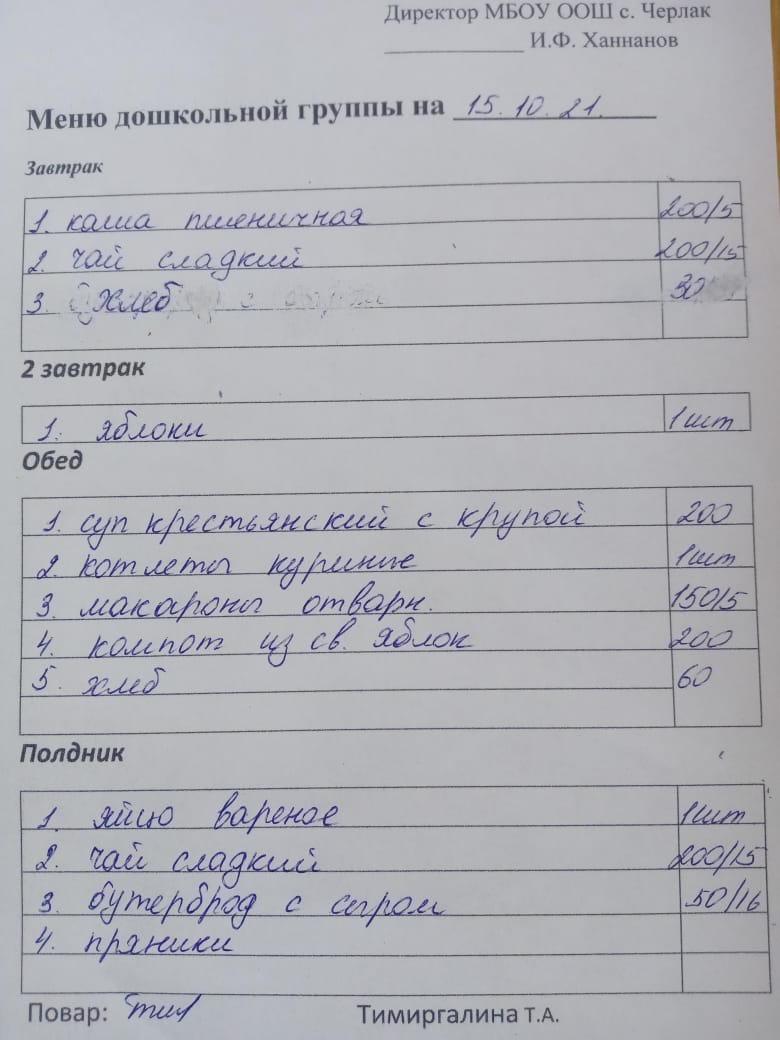 Директор МБОУ ООШ с. Черлак
И.Ф. Ханнанов
Меню дошкольной группы на 15.10.21.
Завтрак
1. каша пшеничная 200/5
2. чай сладкий 200/15
3. хлеб 30
2 завтрак
1. яблоки 1шт
Обед
1. суп крестьянский с крупой 200
2. котлеты куриные 1шт
3. макароны отварн. 150/5
4. компот из св. яблок 200
5. хлеб 60
Полдник
1. яйцо вареное 1шт
2. чай сладкий 200/15
3. бутерброд с сыром 50/16
4. пряники
Повар: Тимиргалина Т.А.